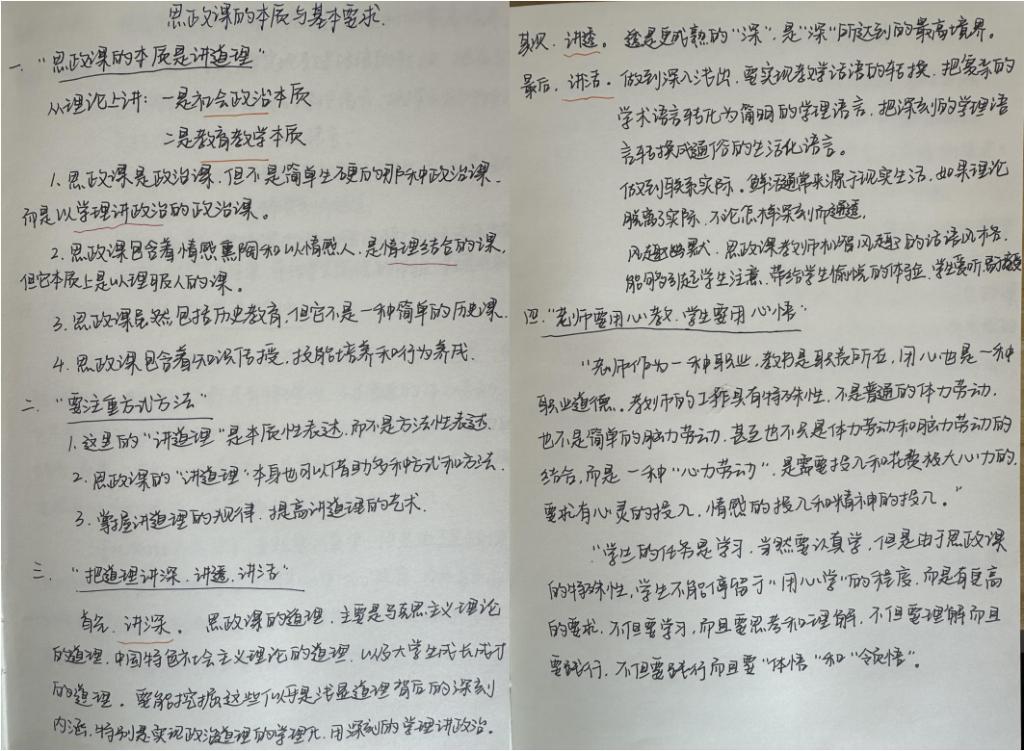 思政课的本质与基本要求.
一、"思政课的本质是讲道理"
从理论上讲：一是社会政治本质
二是教育教学本质
1. 思政课是政治课，但不是简单生硬的那种政治课.
而是以学理讲政治的政治课。
2. 思政课包含着情感熏陶和以情感人，是情理结合的课，
但它本质上是以理服人的课。
3. 思政课虽然包括历史教育，但它不是一种简单的历史课.
4. 思政课包含着知识传授，技能培养和行为养成.
二、"要注重方式方法"
1. 这里的"讲道理"是本质性表达，而不是方法性表达.
2. 思政课的"讲道理"本身也可以借助多种方式和方法.
3. 掌握讲道理的规律，提高讲道理的艺术.
三、"把道理讲深、讲透、讲活"
首先、讲深。 思政课的道理，主要是马克思主义理论
的道理，中国特色社会主义理论的道理，以及大学生成长成才
的道理。要能挖掘这些似乎是浅显道理背后的深刻
内涵，特别是实现政治道理的学理化，用深刻的学理讲政治。
其次、讲透。 透是更成熟的"深"，是"深"所达到的最高境界。
最后、讲活。 做到深入浅出，要实现教学话语的转换，把复杂的
学术语言转化为简明的学理语言，把深刻的学理语
言转换成通俗的生活化语言。
做到联系实际。鲜活通常来源于现实生活，如果理论
脱离了实际，不论怎样深刻而通透，
风趣幽默。思政课教师机智风趣的话语风格，
能够引起学生注意，带给学生愉悦的体验，学生爱听易接受
四、"老师要用心教，学生要用心悟"
"老师作为一种职业，教书是职责所在，用心也是一种
职业道德。教师的工作具有特殊性，不是普通的体力劳动，
也不是简单的脑力劳动，甚至也不只是体力劳动和脑力劳动的
结合，而是一种"心力劳动"，是需要投入和花费极大心力的，
要求有心灵的投入，情感的投入和精神的投入。"
"学生的任务是学习，当然要认真学，但是由于思政课
的特殊性，学生不能停留于"用心学"的程度，而是有更高
的要求，不但要学习，而且要思考和理解，不但要理解而且
要践行，不但要践行而且要"体悟"和"领悟"。